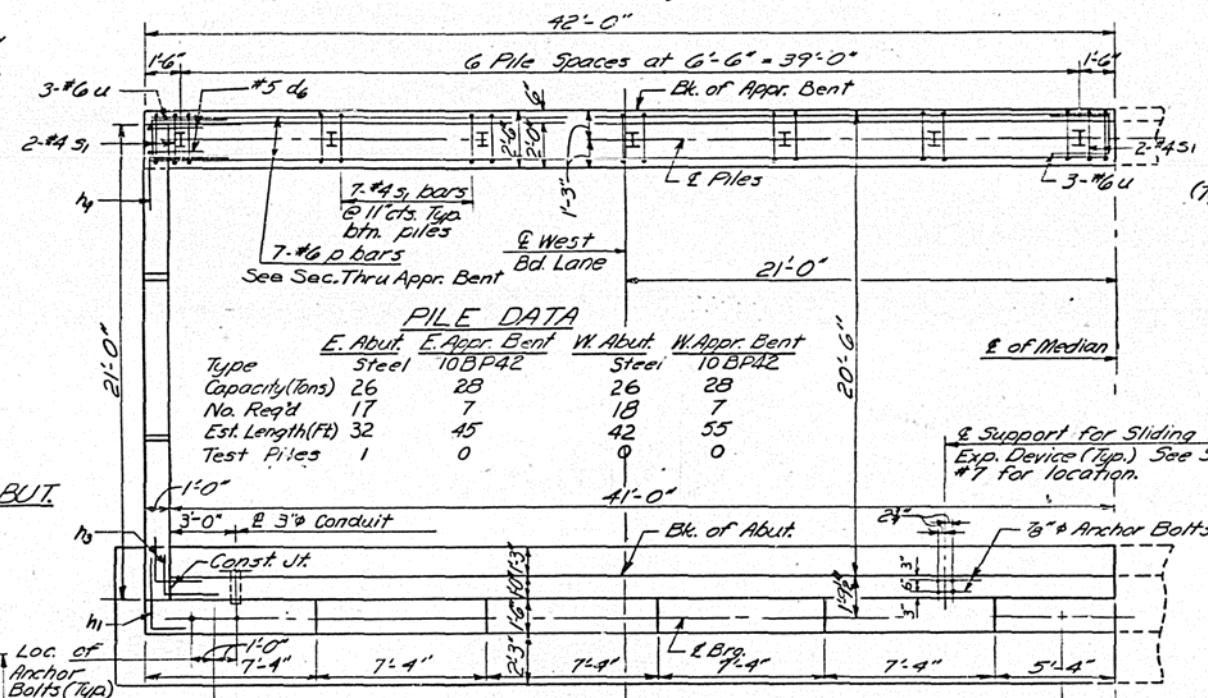 42'-0"
1'-6" 6 Pile Spaces at 6'-6" = 39'-0" 1'-6"
3-#6 u #5 d6 6" Bk. of Appr. Bent
2-#4 s1 2'-6" 2'-0" 1'-3" 2-#4 s1
℄ Piles 3-#6 u
h4 7-#4 s, bars
@ 11"cts. Typ.
btn. piles
7-#6 p bars
See Sec. Thru Appr. Bent
℄ West
Bd. Lane
21'-0"
PILE DATA
E. Abut. E. Appr. Bent W. Abut. W. Appr. Bent
Type Steel 10BP42 Steel 10BP42
Capacity (Tons) 26 28 26 28
No. Req'd 17 7 18 7
Est. Length (Ft) 32 45 42 55
Test Piles 1 0 0 0
21'-0"
20'-6"
℄ of Median
℄ Support for Sliding
Exp. Device (Typ.) See
#7 for location.
BUT.
1'-0" 41'-0"
3'-0" ℄ 3"φ Conduit
h3 Bk. of Abut. 7/8"φ Anchor Bolts
Const. Jt. 1'-3"
1'-0" 6" 3"
h1 1'-6" 3"
℄ Brg.
Loc. of
Anchor
Bolts (Typ.)
1'-0" 2'-3"
7'-4" 7'-4" 7'-4" 7'-4" 7'-4" 5'-4"